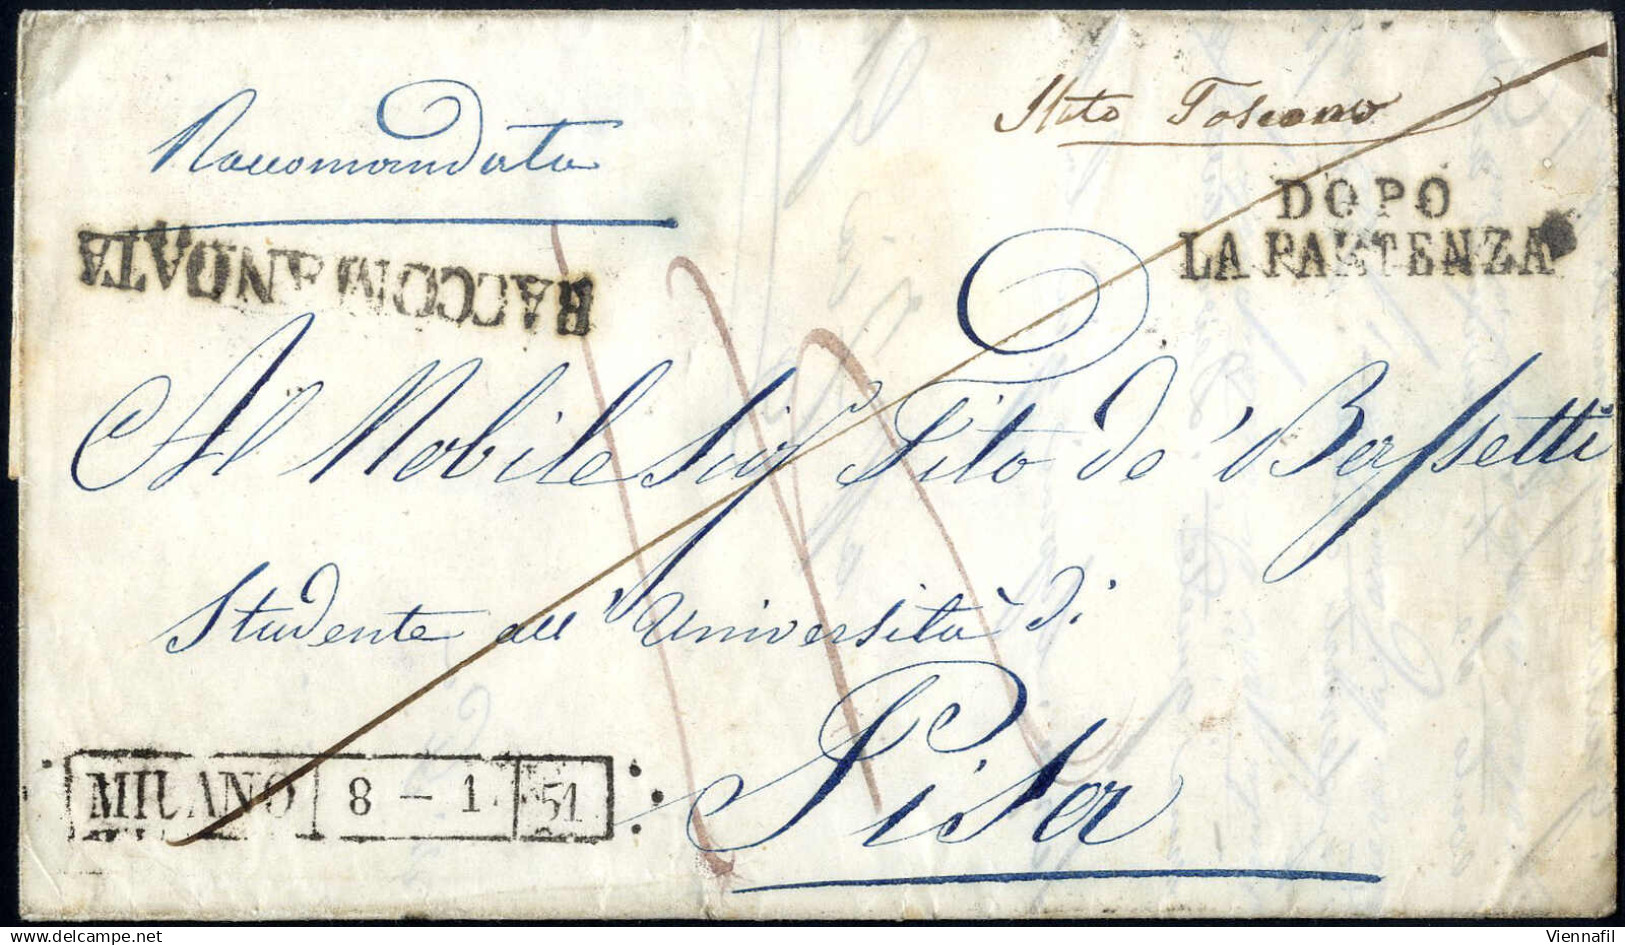 Raccomandata
Stato Toscano
DOPO
LA PARTENZA
RACCOMANDATA
Al Nobile Sig.r Tito de' Bassetti
Studente all' Università di
Pisa
MILANO 8 - 1 51
delcampe.net
Viennafil